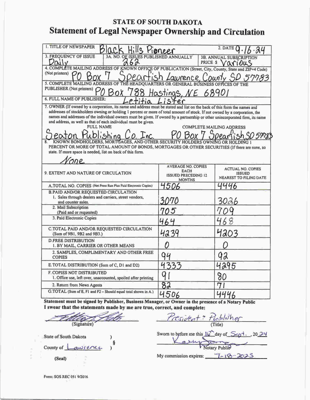 STATE OF SOUTH DAKOTA
Statement of Legal Newspaper Ownership and Circulation
1. TITLE OF NEWSPAPER Black Hills Pioneer 2. DATE 9-16-24
3. FREQUENCY OF ISSUE Daily 3A. NO. OF ISSUES PUBLISHED ANNUALLY 3B. ANNUAL SUBSCRIPTION PRICE $ Various
4. COMPLETE MAILING ADDRESS OF KNOWN OFFICE OF PUBLICATION (Street, City, County, State and ZIP+4 Code) (Not printers)
PO Box 7 Spearfish Lawrence County SD 57783
5. COMPLETE MAILING ADDRESS OF THE HEADQUARTERS OR GENERAL BUSINESS OFFICES OF THE PUBLISHER (Not printers)
PO Box 788 Hastings, NE 68901
6. FULL NAME OF PUBLISHER:
Letitia Lister
7. OWNER (If owned by a corporation, its name and address must be stated and also the names and addresses of stockholders owning or holding 1 percent or more of total amount of stock. If not owned by a corporation, the names and addresses of the individual owners must be given. If owned by a partnership or other unincorporated firm, its name and address, as well as that of each individual must be given.
FULL NAME COMPLETE MAILING ADDRESS
Seaton Publishing Co. Inc. PO Box 7 Spearfish SD 57783
8. KNOWN BONDHOLDERS, MORTGAGEES, AND OTHER SECURITY HOLDERS OWNING OR HOLDING 1 PERCENT OR MORE OF TOTAL AMOUNT OF BONDS, MORTGAGES OR OTHER SECURITIES (If there are none, so state. If more space is needed, list on back of this form.
None
9. EXTENT AND NATURE OF CIRCULATION AVERAGE NO. COPIES EACH ISSUED PRECEDING 12 MONTHS ACTUAL NO. COPIES ISSUED NEAREST TO FILING DATE
A. TOTAL NO. COPIES (Net Press Run Plus Paid Electronic Copies) 4506 4446
B. PAID AND/OR REQUESTED CIRCULATION
1. Sales through dealers and carriers, street vendors, and counter sales. 3070 3026
2. Mail Subscription (Paid and or requested) 705 709
3. Paid Electronic Copies 464 468
C. TOTAL PAID AND/OR REQUESTED CIRCULATION (Sum of 9B1, 9B2 and 9B3) 4239 4203
D. FREE DISTRIBUTION
1. BY MAIL, CARRIER OR OTHER MEANS 0 0
2. SAMPLES, COMPLIMENTARY AND OTHER FREE COPIES 94 92
E. TOTAL DISTRIBUTION (Sum of C, D1 and D2) 4333 4295
F. COPIES NOT DISTRIBUTED
1. Office use, left over, unaccounted, spoiled after printing 91 80
2. Return from News Agents 82 71
G. TOTAL (Sum of E, F1 and F2 - Should equal total shown in A.) 4506 4446
Statement must be signed by Publisher, Business Manager, or Owner in the presence of a Notary Public
I swear that the statements made by me are true, correct, and complete:
President - Publisher
(Signature) (Title)
State of South Dakota ) Sworn to before me this day of Sept. 20 24
) §
County of Lawrence ) Notary Public
(Seal) My commission expires: 7-18-2025
Form: SOS REC 051 9/2016